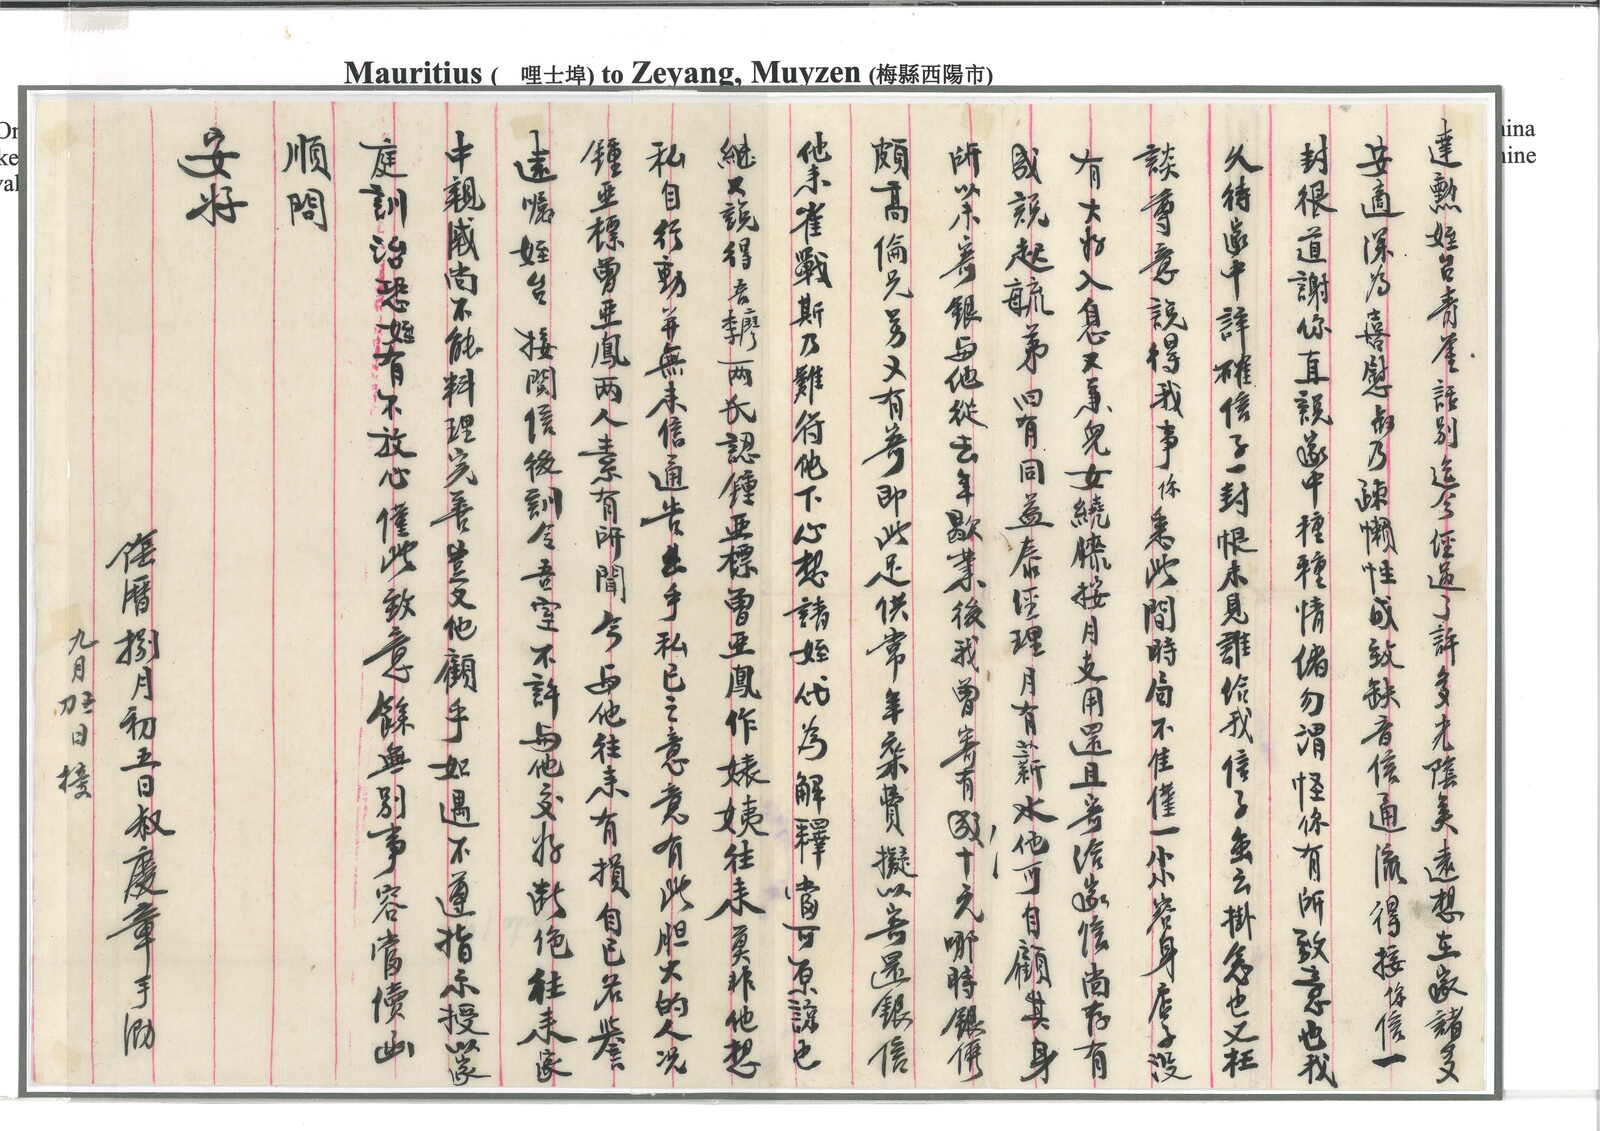 Mauritius ( 哩士埠) to Zeyang, Muyzen (梅縣西陽市)
達勲姪台青崖話別迄今經過了許多光陰矣遠想在家諸多
安適深為喜慰叔乃疎懶性成致缺音信通流得接你信一
封很道謝你直説家中種種情緒勿謂怪你有所致意也我
久待家中詳確信子一封恨未見誰給我信子無云掛念也又枉
談尊意説得我事你悉此間時局不佳僅一尔容身店子没
有大好入息又兼兒女繞膝按月支用還且寄給家信尚存有
國説起毓弟回有同益泰經理月有薪水他可自顧其身
所以尔寄銀与他從去年歇業後我曾寄有國十元哪時銀價
頗高倫兄另又有寄即此足供常年柴費擬以寄還銀信
他未雀戰斯乃難符他下心想諸姪代為解釋當可原諒也
繼又説得吾李廖兩氏認鍾亞標曾亞鳳作婊姨往来莫非他想
私自行動并無来信通告出乎私己之意竟有此胆大的人况
鍾亞標曾亞鳳兩人素有所聞今与他往来有損自己名譽
遠囑姪台 接閲信後訓令吾室不許与他交好断絶往来家
中親戚尚不能料理完善豈又他顧乎如遇不遵指示授以家
庭訓治恐姪有不放心僅此致意餘無別事容當續函
順問
安好
陰曆捌月初五日叔慶章手泐
九月 日接